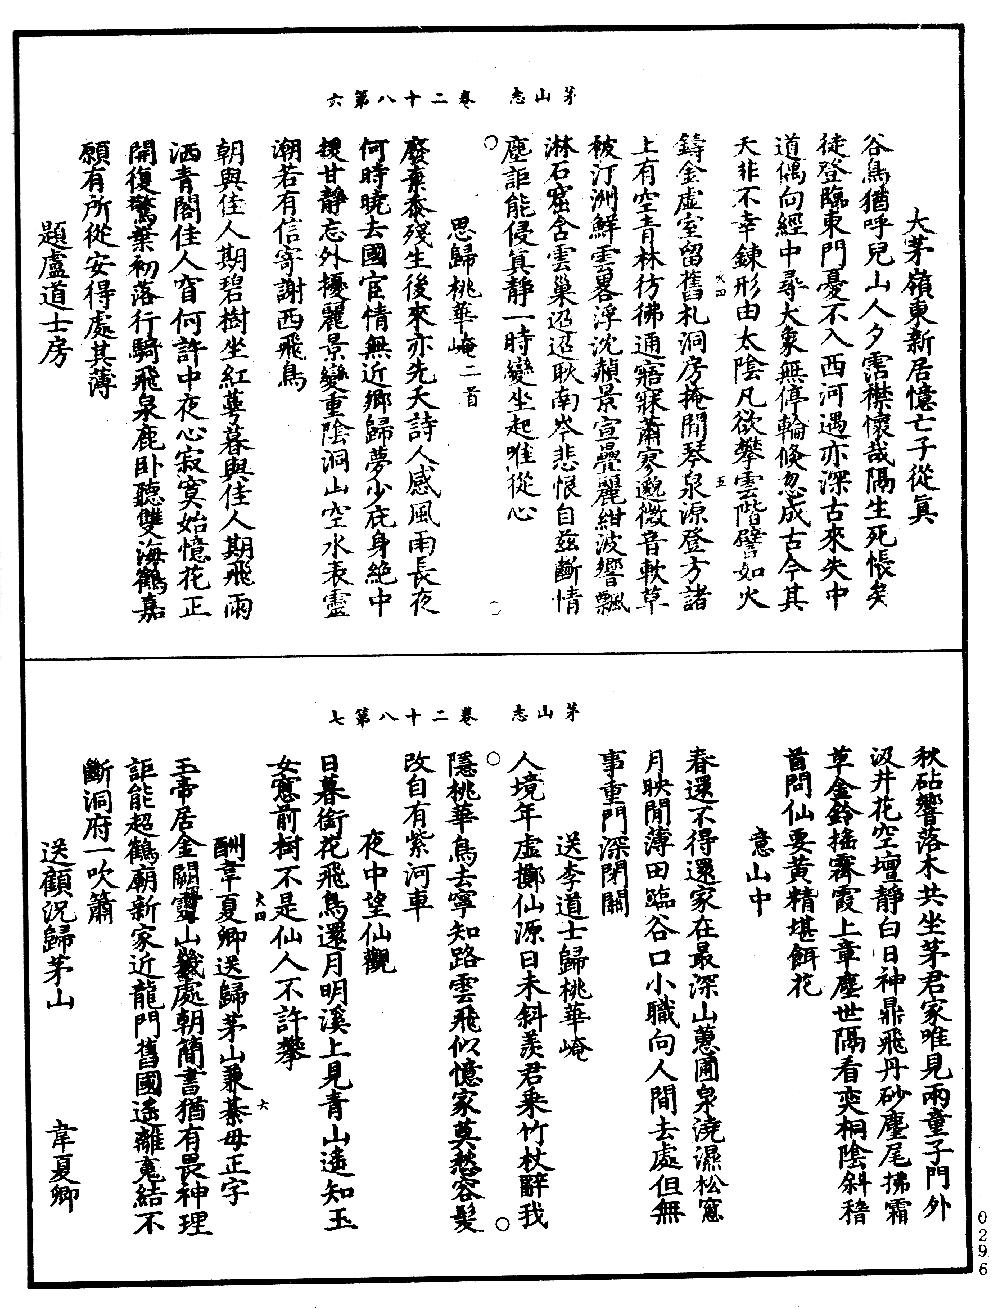 茅山志　卷二十八第六
大茅嶺東新居憶亡子從真
谷鳥猶呼兒山人夕霑襟懷哉隔生死悵矣
徒登臨東門憂不入西河遇亦深古來失中
道偶向經中尋大象無停輪倏忽成古今其
夭非不幸鍊形由太陰凡欲攀雲階譬如火
鑄金虛室留舊札洞房掩閒琴泉源登方諸
上有空青林彷彿通寤寐蕭寥邈微音軟草
被汀洲鮮雲畧浮沈赬景宣疊麗紺波響飄
淋石窟含雲巢迢迢耿南岑悲恨自茲斷情
塵詎能侵真靜一時變坐起唯從心
思歸桃華崦二首
廢棄忝殘生後來亦先夭詩人感風雨長夜
何時曉去國宦情無近鄉歸夢少庇身絕中
援甘靜忘外擾麗景變重陰洞山空水表靈
潮若有信寄謝西飛鳥
朝與佳人期碧樹坐紅萼暮與佳人期飛雨
洒青閣佳人窅何許中夜心寂寞始憶花正
開復驚葉初落行騎飛泉鹿卧聽雙海鶴嘉
願有所從安得處其薄
題盧道士房
茅山志　卷二十八第七
秋砧響落木共坐茅君家唯見兩童子門外
汲井花空壇靜白日神鼎飛丹砂麈尾拂霜
草金鈴搖霽霞上章塵世隔看奕桐陰斜稽
首問仙要黃精堪餌花
意山中
春還不得還家在最深山蕙圃泉澆濕松窻
月映閒薄田臨谷口小職向人間去處但無
事重門深閉關
送李道士歸桃華崦
人境年虛擲仙源日未斜羨君乘竹杖辭我
隱桃華鳥去寧知路雲飛似憶家莫愁容髮
改自有紫河車
夜中望仙觀
日暮銜花飛鳥還月明溪上見青山遙知玉
女窻前樹不是仙人不許攀
酬韋夏卿送歸茅山兼綦毋正字
玉帝居金闕靈山幾處朝簡書猶有畏神理
詎能超鶴廟新家近龍門舊國遙離䰟結不
斷洞府一吹簫
送顧況歸茅山　韋夏卿
0296